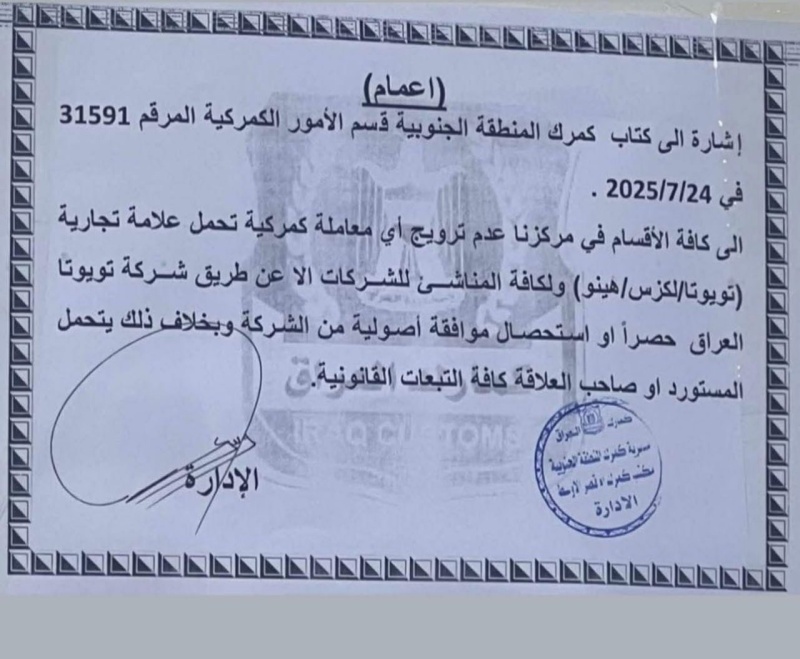 (اعمام)
إشارة الى كتاب كمرك المنطقة الجنوبية قسم الأمور الكمركية المرقم 31591
في 2025/7/24 .
الى كافة الأقسام في مركزنا عدم ترويج أي معاملة كمركية تحمل علامة تجارية
(تويوتا/لكزس/هينو) ولكافة المناشئ للشركات الا عن طريق شركة تويوتا
العراق حصراً او استحصال موافقة أصولية من الشركة وبخلاف ذلك يتحمل
المستورد او صاحب العلاقة كافة التبعات القانونية.
الإدارة
كمارك العراق
مديرية كمرك المنطقة الجنوبية
مكتب كمرك ام قصر الاوسط
الادارة
IRAQ CUSTOMS